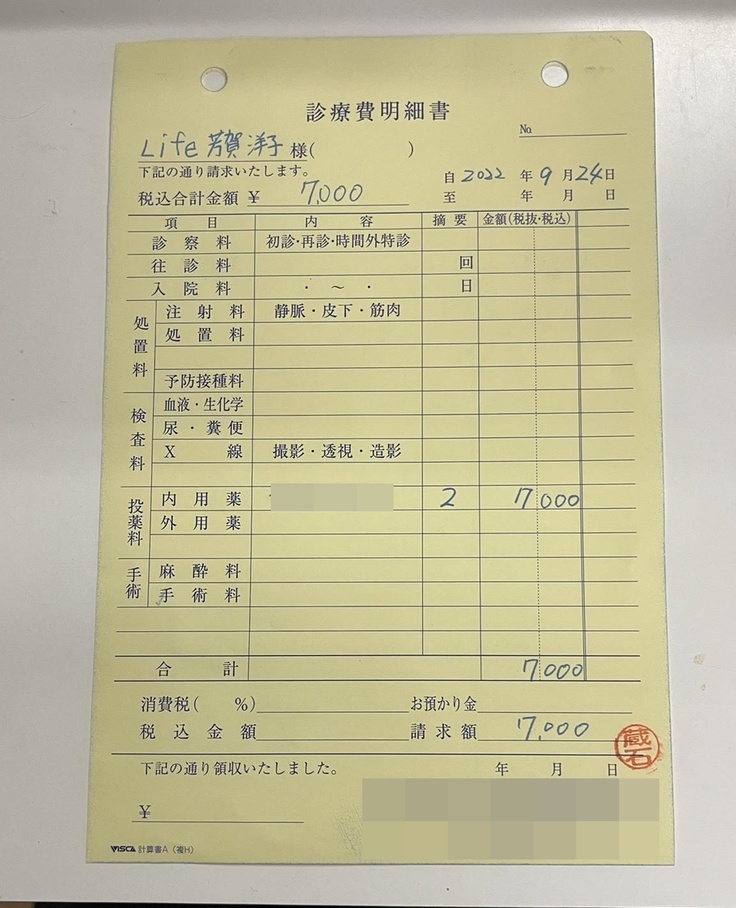 診療費明細書
No.
Life 芳賀 洋子 様( )
下記の通り請求いたします。
自 2022 年 9 月 24 日
税込合計金額 ¥ 7,000
至 年 月 日
項目 内容 摘要 金額(税抜・税込)
診察料 初診・再診・時間外特診
往診料 回
入院料 ・ ～ ・ 日
処置料
注射料 静脈・皮下・筋肉
処置料
予防接種料
検査料
血液・生化学
尿・糞便
X線 撮影・透視・造影
投薬料
内用薬 2 7000
外用薬
手術
麻酔料
手術料
合計 7000
消費税( %) お預かり金
税込金額 請求額 7,000
蔵石
下記の通り領収いたしました。 年 月 日
¥
VISCA 計算書A（複H）